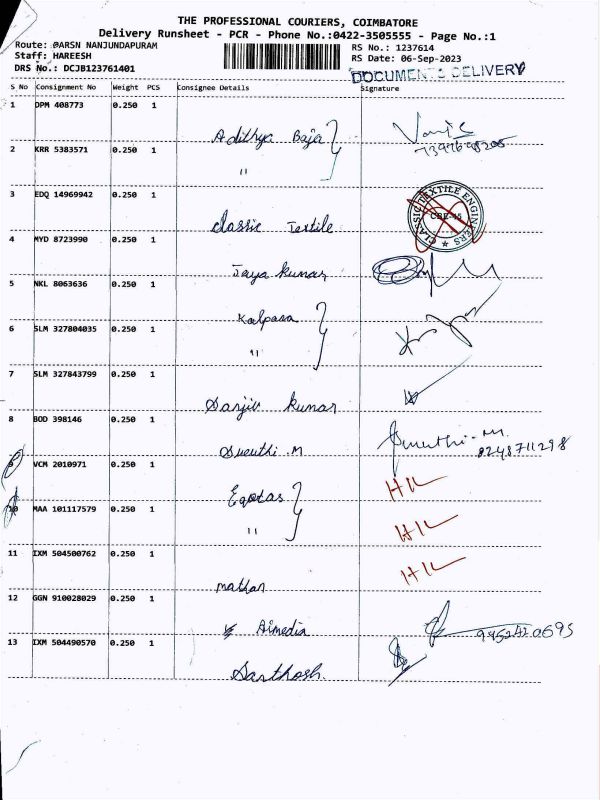 THE PROFESSIONAL COURIERS, COIMBATORE
Delivery Runsheet - PCR - Phone No.:0422-3505555 - Page No.:1
Route: @ARSN NANJUNDAPURAM
RS No.: 1237614
Staff: HAREESH
RS Date: 06-Sep-2023
DRS No.: DCJB123761401
DOCUMENTS DELIVERY
S No Consignment No Weight PCS Consignee Details Signature
1 DPM 408773 0.250 1
Adithya Baja
2 KRR 5383571 0.250 1
"
3 EDQ 14969942 0.250 1
classic Textile
CLASSIC TEXTILE ENGINEERS
CBE-45
4 MYD 8723990 0.250 1
Jaya kumar
5 NKL 8063636 0.250 1
Kalpana
6 SLM 327804035 0.250 1
"
7 SLM 327843799 0.250 1
Sanjiv kumar
8 BOD 398146 0.250 1
Sruthi M
Sruthi.M.
8248711298
9 VCM 2010971 0.250 1
10 MAA 101117579 0.250 1
"
11 IXM 504500762 0.250 1
mathan
12 GGN 910028029 0.250 1
Aimedia
9952420695
13 IXM 504490570 0.250 1
Santhosh